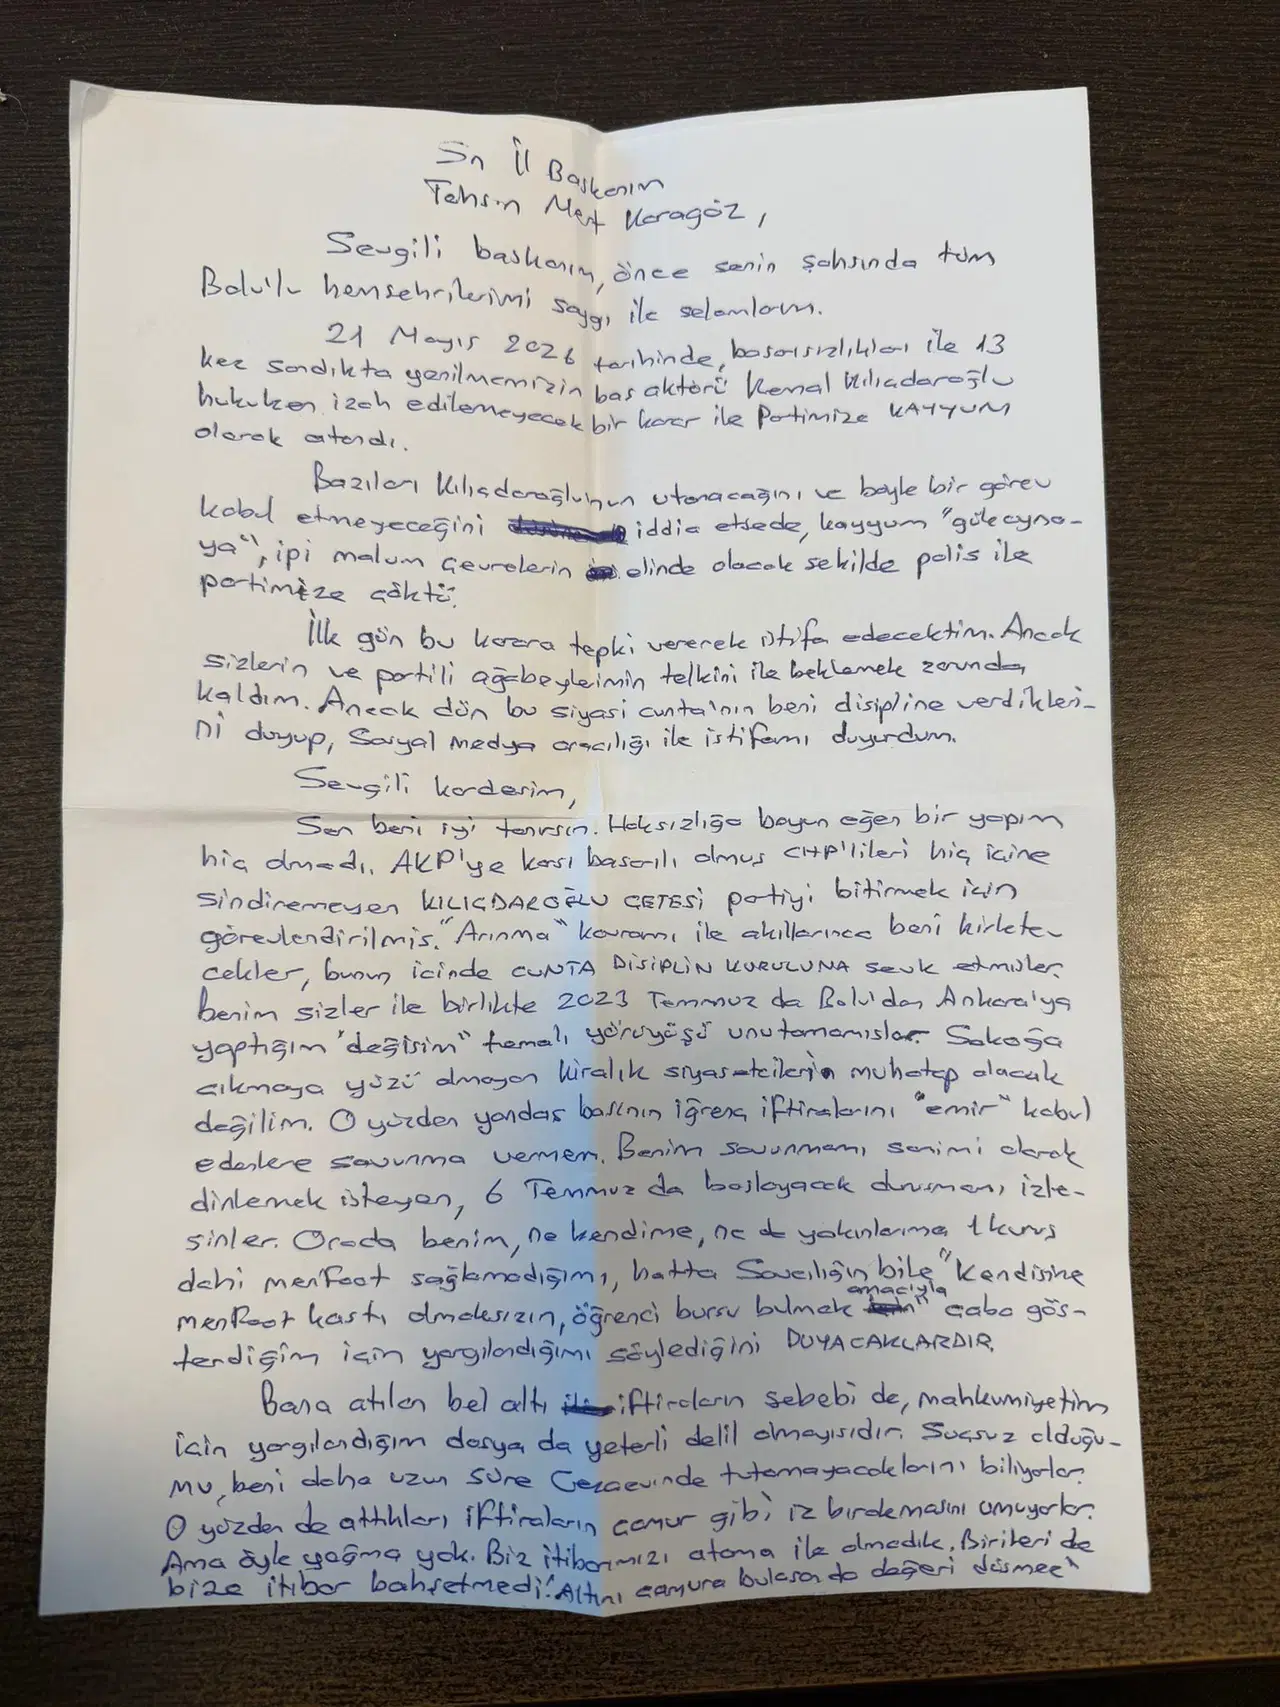 Sn İl Başkanım
Tahsin Mert Karagöz,
Sevgili başkanım, önce senin şahsında tüm
Bolu'lu hemşehrilerimi saygı ile selamlarım.
21 Mayıs 2026 tarihinde, başarısızlıkları ile 13
kez sandıkta yenilmemizin baş aktörü Kemal Kılıçdaroğlu
hukuken izah edilemeyecek bir karar ile Partimize KAYYUM
olarak atandı.
Bazıları Kılıçdaroğlu'nun utanacağını ve böyle bir görev
kabul etmeyeceğini iddia etsede, kayyum "güle oyna-
ya", ipi malum çevrelerin elinde olacak şekilde polis ile
partimize çöktü.
İlk gün bu karara tepki vererek istifa edecektim. Ancak
sizlerin ve partili ağabeylerimin telkini ile beklemek zorunda
kaldım. Ancak dün bu siyasi cunta'nın beni disipline verdikleri-
ni duyup, Sosyal Medya aracılığı ile istifamı duyurdum.
Sevgili kardeşim,
Sen beni iyi tanırsın. Haksızlığa boyun eğen bir yapım
hiç olmadı. AKP'ye karşı başarılı olmuş CHP'lileri hiç içine
sindiremeyen KILIÇDAROĞLU ÇETESİ partiyi bitirmek için
görevlendirilmiş. "Arınma" kavramı ile akıllarınca beni kirlete-
cekler, bunun içinde CUNTA DİSİPLİN KURULUNA sevk etmişler.
Benim sizler ile birlikte 2023 Temmuz da Bolu'dan Ankara'ya
yaptığım "değişim" temalı yürüyüşü unutamamışlar. Sokağa
çıkmaya yüzü olmayan kiralık siyasetçilerin muhatap olacak
değilim. O yüzden yandaş basının iğrenç iftiralarını "emir" kabul
edenlere savunma vermem. Benim savunmamı samimi olarak
dinlemek isteyen, 6 Temmuz da başlayacak duruşmamı izle-
sinler. Orada benim, ne kendime, ne de yakınlarıma 1 kuruş
dahi menfaat sağlamadığımı, hatta Savcılığın bile "Kendisine
menfaat kastı olmaksızın, öğrenci bursu bulmak amacıyla" çaba gös-
terdiğim için yargılandığımı söylediğini DUYACAKLARDIR.
Bana atılan bel altı iftiraların sebebi de, mahkumiyetim
için yargılandığım dosya da yeterli delil olmayışıdır. Suçsuz olduğu-
mu, beni daha uzun süre Cezaevinde tutamayacaklarını biliyorlar.
O yüzden de attıkları iftiraların çamur gibi iz bırakmasını umuyorlar.
Ama öyle yağma yok. Biz itibarımızı atama ile almadık. Birileri de
bize itibar bahşetmedi. "Altını çamura bulasan da değeri düşmez"